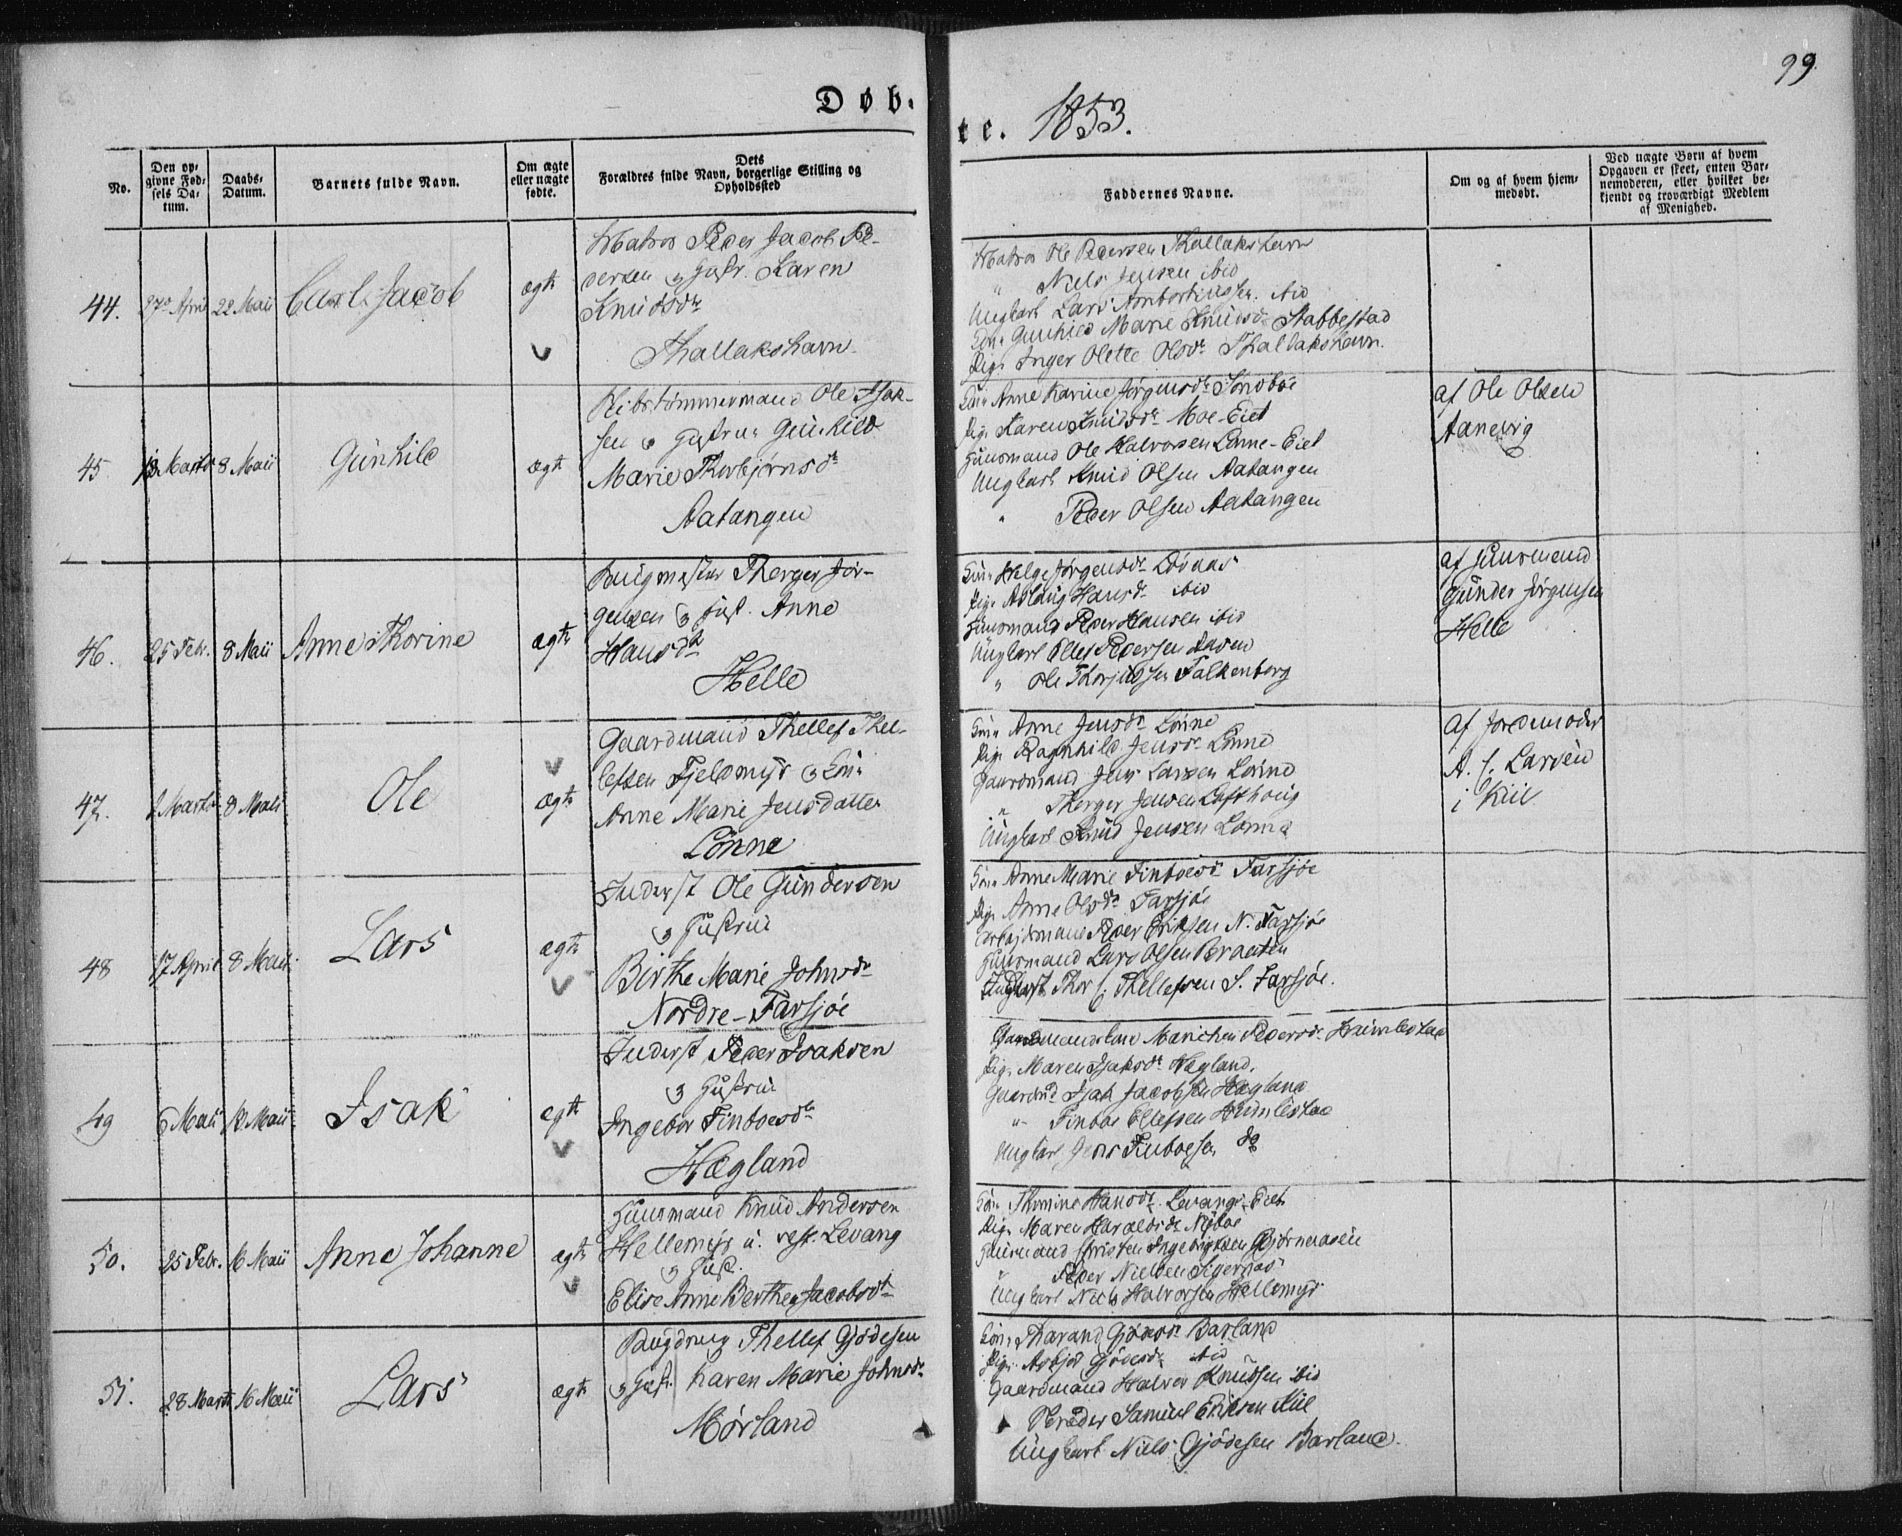 99.
Døb-
te. 1853.
No.
Den op-
givne Fød-
sels Da-
tum.
Daabs-
Datum.
Barnets fulde Navn.
Om ægte
eller uægte
fødte.
Dets
Forældres fulde Navn, borgerlige Stilling og
Opholdssted
Faddernes Navne.
Om og af hvem hjem-
medøbt.
Ved uægte Børn af hvem
Opgaven er skeet, enten Bar-
nemoderen, eller hvilket be-
kjendt og troværdigt Medlem
af Menighed.
44.
27de April
22 Maii
Carl Jacob
ægte
Matros Peder Jacob Pe-
dersen og Hustr. Karen
Knudsdtr
Thallakshavn
Matros Ole Pedersen Thallakshavn
" Niels Jensen ibid
Ungkarl Lars Ambortiussen ibid
Kone Gunhild Marie Knudsdr Stabbestad
Pige Inger Olette Olsdr Thallakshavn.
45
Marts
8 Maii
Gunhild
ægte
Skibstømmermand Ole Isak-
sen og Hustrue Gunhild
Marie Thorbjørnsdtr
Aatangen
Kone Anne Karine Jørgensdr
Pige Karen Knudsdr Moe-Eiet
Huusmand Ole Halvorsen Lønne-Eiet
Ungkarl Knud Olsen Aatangen
" Peder Olsen Aatangen
af Ole Olsen
Aanevig
46.
25 Febr.
8 Maii
Anne Thorine
ægte
Baugmester Therger Jør-
gensen og Hust. Anne
Hansdtr
Helle
Kone Helge Jørgensdr
Pige Aslaug Hansdr ibid
Huusmand Peder Hansen ibid
Ungkarl Ellef Pedersen
" Ole Falkenborg
af Huusmand
Gunder Jørgensen
Helle
47.
Marts
8 Maii
Ole
ægte
Gaardmand Thellef Thel-
lefsen Fjeldmyr og Kone
Anne Marie Jensdatter
Lønne
Kone Anne Jensdr Lønne
Pige Ragnhild Jensdr Lønne
Gaardmand Jens Larsen Lønne
" Therger Jensen Lofthoug
Ungkarl Knud Jensen Lønne
af Jordemoder
A. C. Larsen
i Kiil
48
17 April
8 Maii
Lars
ægte
Inderst Ole Gundersen
og Hustrue
Birthe Marie Johnsdr
Nordre-Farsjøe
Kone Anne Marie Finboesdr Farsjøe
Pige Anne Olsdr Farsjøe
Arbeidsmand Peder Eriksen N. Farsjøe
Huusmand Lars Olsen Braaten
Thor C. Thellefsen S. Farsjøe.
49
6 Maii
Maii
Isak
ægte
Inderst Peder Isaksen
og Hustrue
Ingebor Finboesdtr
Hægland
Gaardmandskone Marichen Pedersdr Humlestad
Pige Maren Isaksdr Hægland.
Gaardmd Isak Jacobsen Hægland
" Finboe Ellefsen Humlestad
Ungkarl Jens Finboesen do
50.
25 Febr.
16 Maii
Anne Johanne
ægte
Huusmand Knud Andersen
Hellemyr u. vest. Levang
og Hust.
Elise Anne Berthea Jacobsdtr
Kone Thomine Hansdr Levangs-Eiet
Pige Maren Haralsdr Nyboe
Huusmand Christen Ingebrigtsen Bjørneraasen
" Peder Nielsen
Ungkarl Niels Halvorsen Hellemyr
51.
28 Marts
16 Maii
Lars
ægte
Baugdreng Thellef Gjødesen
og Hust. Karen Marie Johnsdr
Mørland
Kone Tharand Gjødesdr Barland
Pige Asbjør Gjødesdr ibid
Gaardmand Halvor Knudsen ibid
Samuel Eriksen Kiil
Ungkarl Niels Gjødesen Barland.